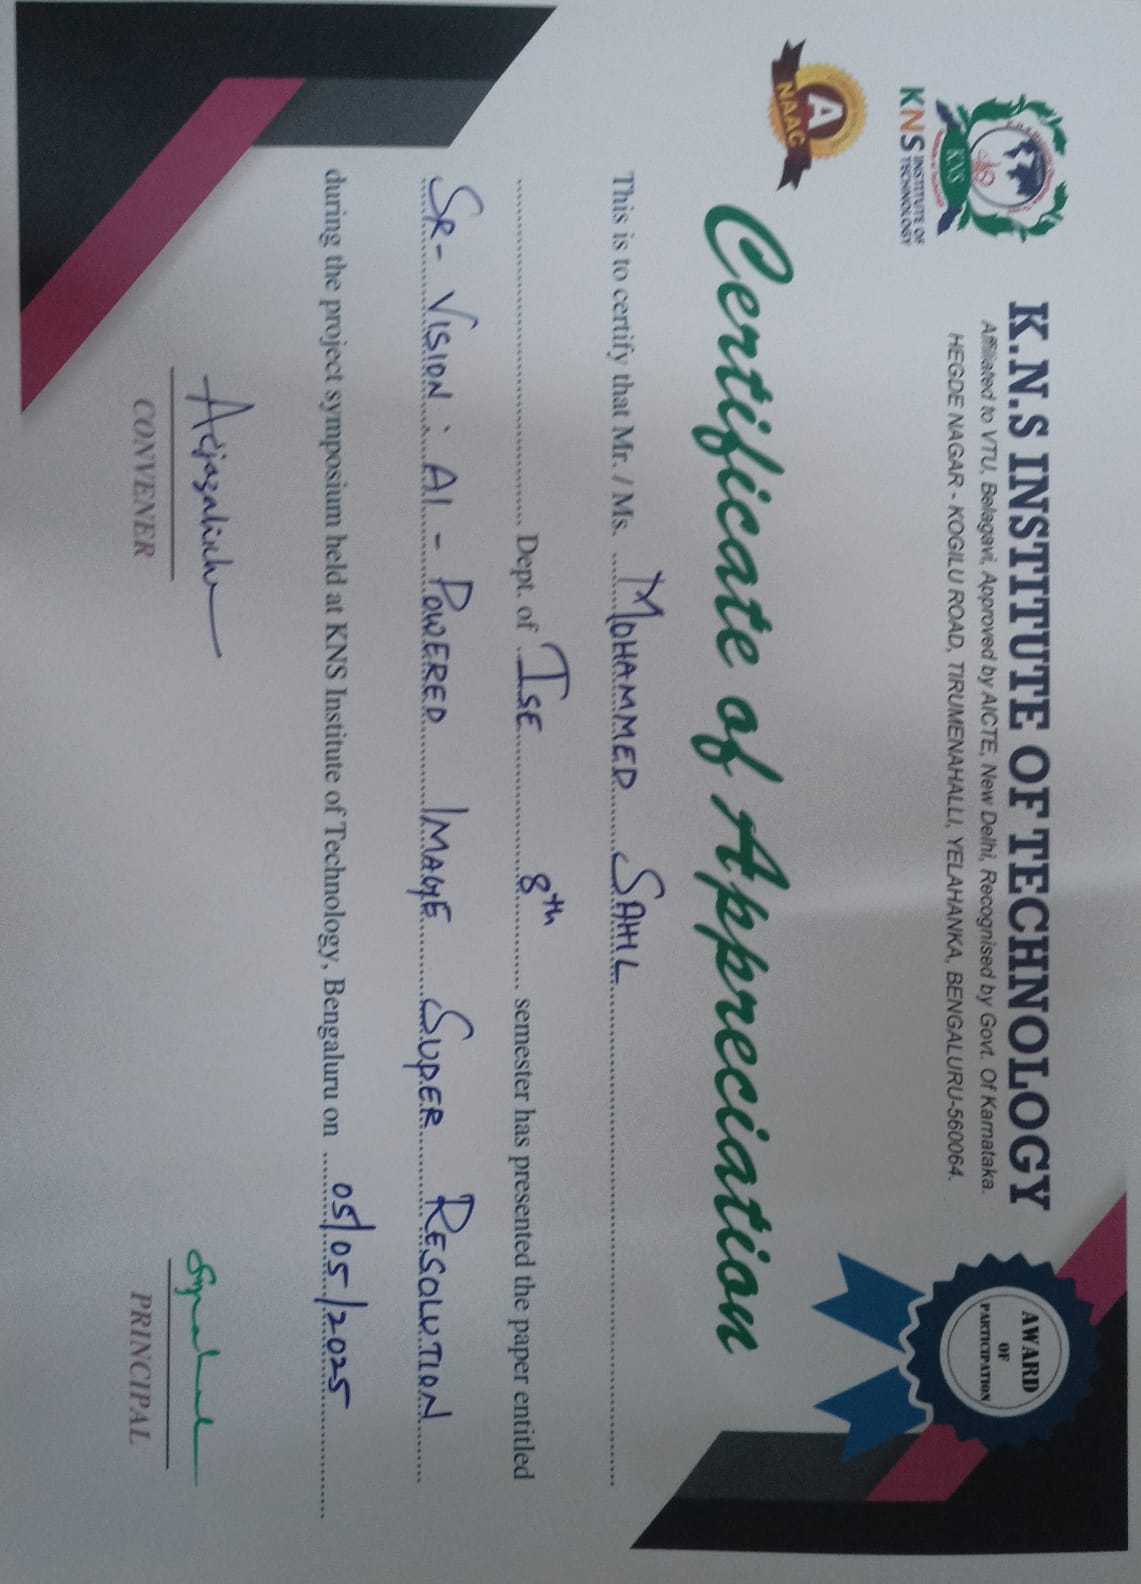 K.N.S INSTITUTE OF TECHNOLOGY
Affiliated to VTU, Belagavi, Approved by AICTE, New Delhi, Recognised by Govt. Of Karnataka.
HEGDE NAGAR - KOGILU ROAD, TIRUMENAHALLI, YELAHANKA, BENGALURU-560064.
KNS
KNS INSTITUTE OF TECHNOLOGY
AWARD
OF
PARTICIPATION
A
NAAC
Certificate of Appreciation
This is to certify that Mr. / Ms. MOHAMMED SAHIL
Dept. of ISE 8th semester has presented the paper entitled
SR- VISION : AI - POWERED IMAGE SUPER RESOLUTION
during the project symposium held at KNS Institute of Technology, Bengaluru on 05/05/2025
CONVENER
PRINCIPAL